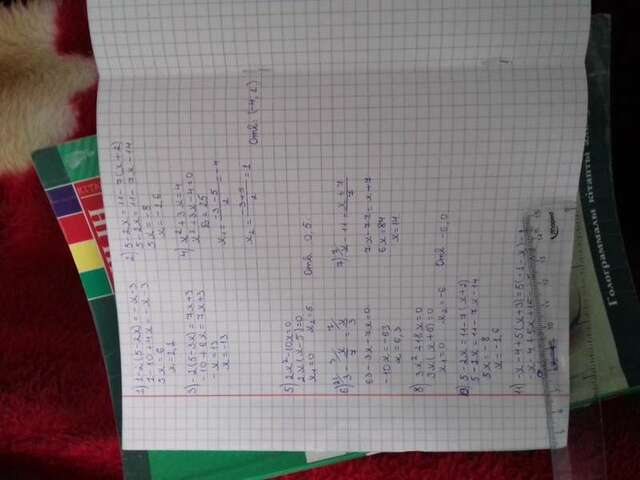 1) 1-2(5-2x)=-x-3
1-10+4x=-x-3
5x=6
x=1,2
2) 5-2x=11-7(x+2)
5-2x=11-7x-14
5x=-8
x=-1,6
3) -2(5-3x)=7x+3
-10+6x=7x+3
-x=13
x=-13
4) x²+3x=4
x²+3x-4=0
D=25
x₁=(-3-5)/2=-4
x₂=(-3+5)/2=1
Отв: (-4,1)
5) 2x²-10x=0
2x(x-5)=0
x₁=0 x₂=5 Отв 0,5
6) 3 - x/7 = x/3
63-3x-7x=0
-10x=-63
x=6,3
7) x-11=(x+7)/7
7x-77=x+7
6x=84
x=14
8) 3x²+18x=0
3x(x+6)=0
x₁=0 x₂=-6 Отв -6,0
9) 5-2x=11-7(x+2)
5-2x=11-7x-14
5x=-8
x=-1,6
11) -x-4+5(x+3)=5(-1-x)-
-x-4+5x+15=
10 11 12 13 14 15
Голограммалы кітапты